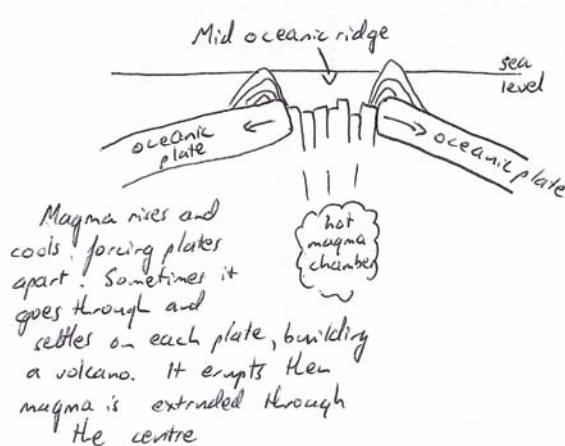 Mid oceanic ridge
sea
level
oceanic
plate
oceanic plate
hot
magma
chamber
Magma rises and
cools, forcing plates
apart. Sometimes it
goes through and
settles on each plate, building
a volcano. It erupts then
magma is extruded through
the centre